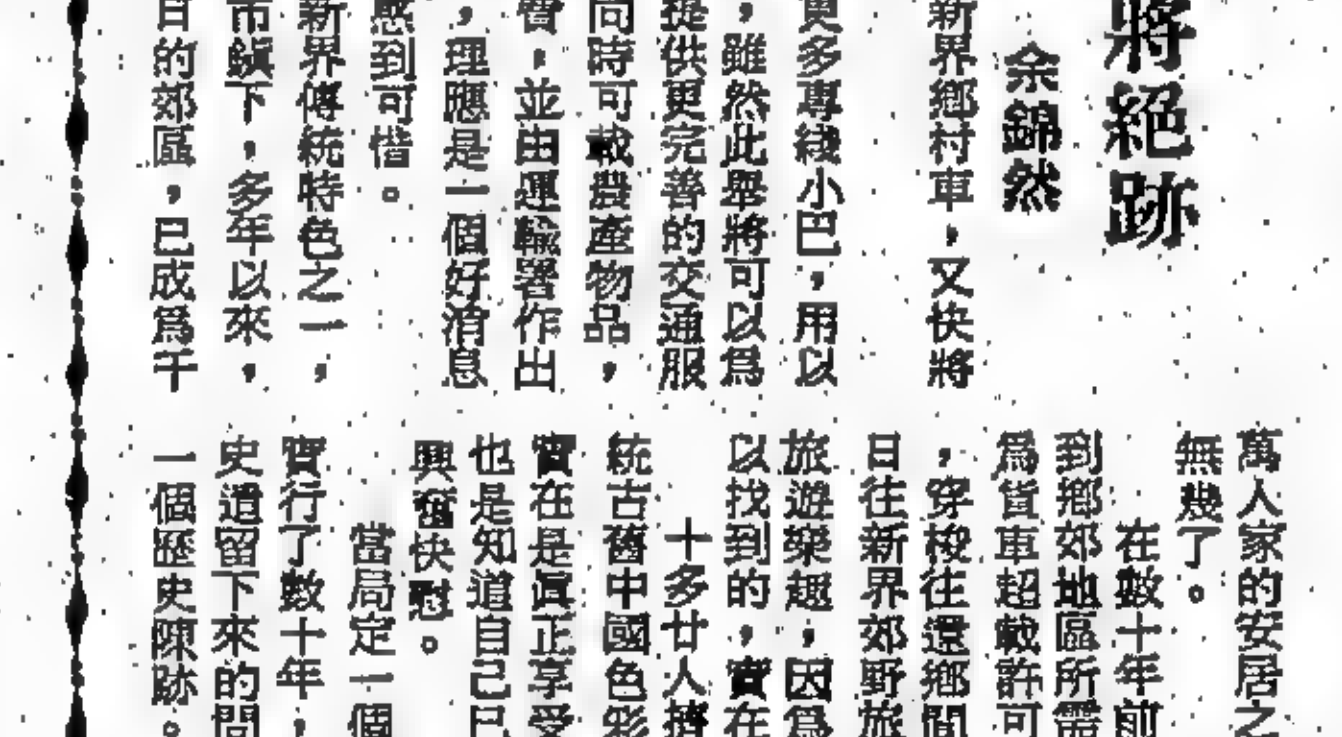 將絕跡
余錦然
新界鄉村車，又快將
更多專綫小巴，用以
，雖然此舉將可以爲
提供更完善的交通服
同時可載農產物品，
費，並由運輸署作出
，理應是一個好消息
感到可惜。
新界傳統特色之一，
市鎮下，多年以來，
日的郊區，已成爲千
萬人家的安居之
無幾了。
在數十年前
到鄉郊地區所需
爲貨車超載許可
，穿梭往還鄉間
日往新界郊野旅
旅遊樂趣，因爲
以找到的，實在
十多廿人擠
統古舊中國色彩
實在是眞正享受
也是知道自己已
興奮快慰。
當局定一個
實行了數十年，
史遺留下來的間
一個歷史陳跡。